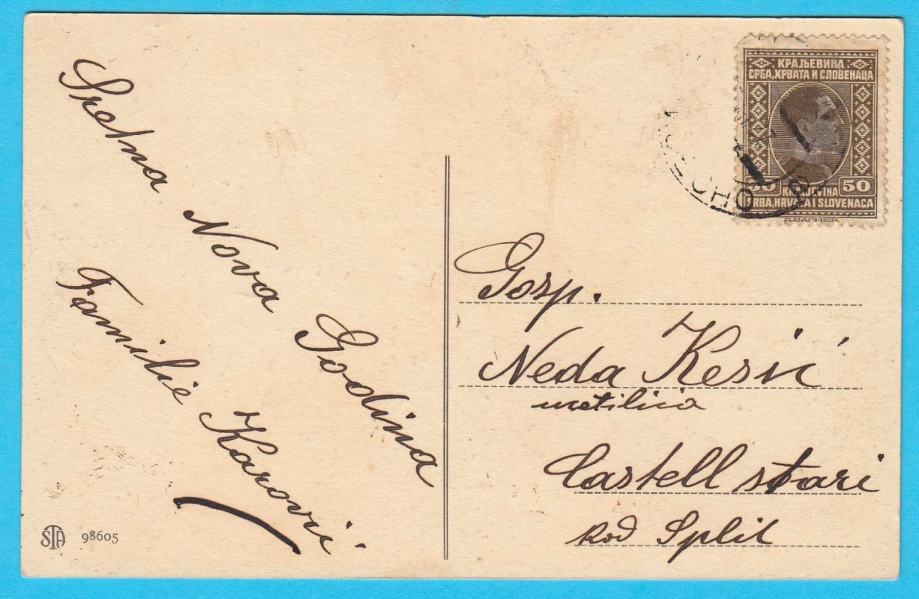 Sretna Nova Godina
Familie Karović
КРАЉЕВИНА
СРБА, ХРВАТА И СЛОВЕНАЦА
50 50
KRALJEVINA
SRBA, HRVATA I SLOVENACA
Gosp.
Neda Kesić
Castell stari
kod Split
STA 98605